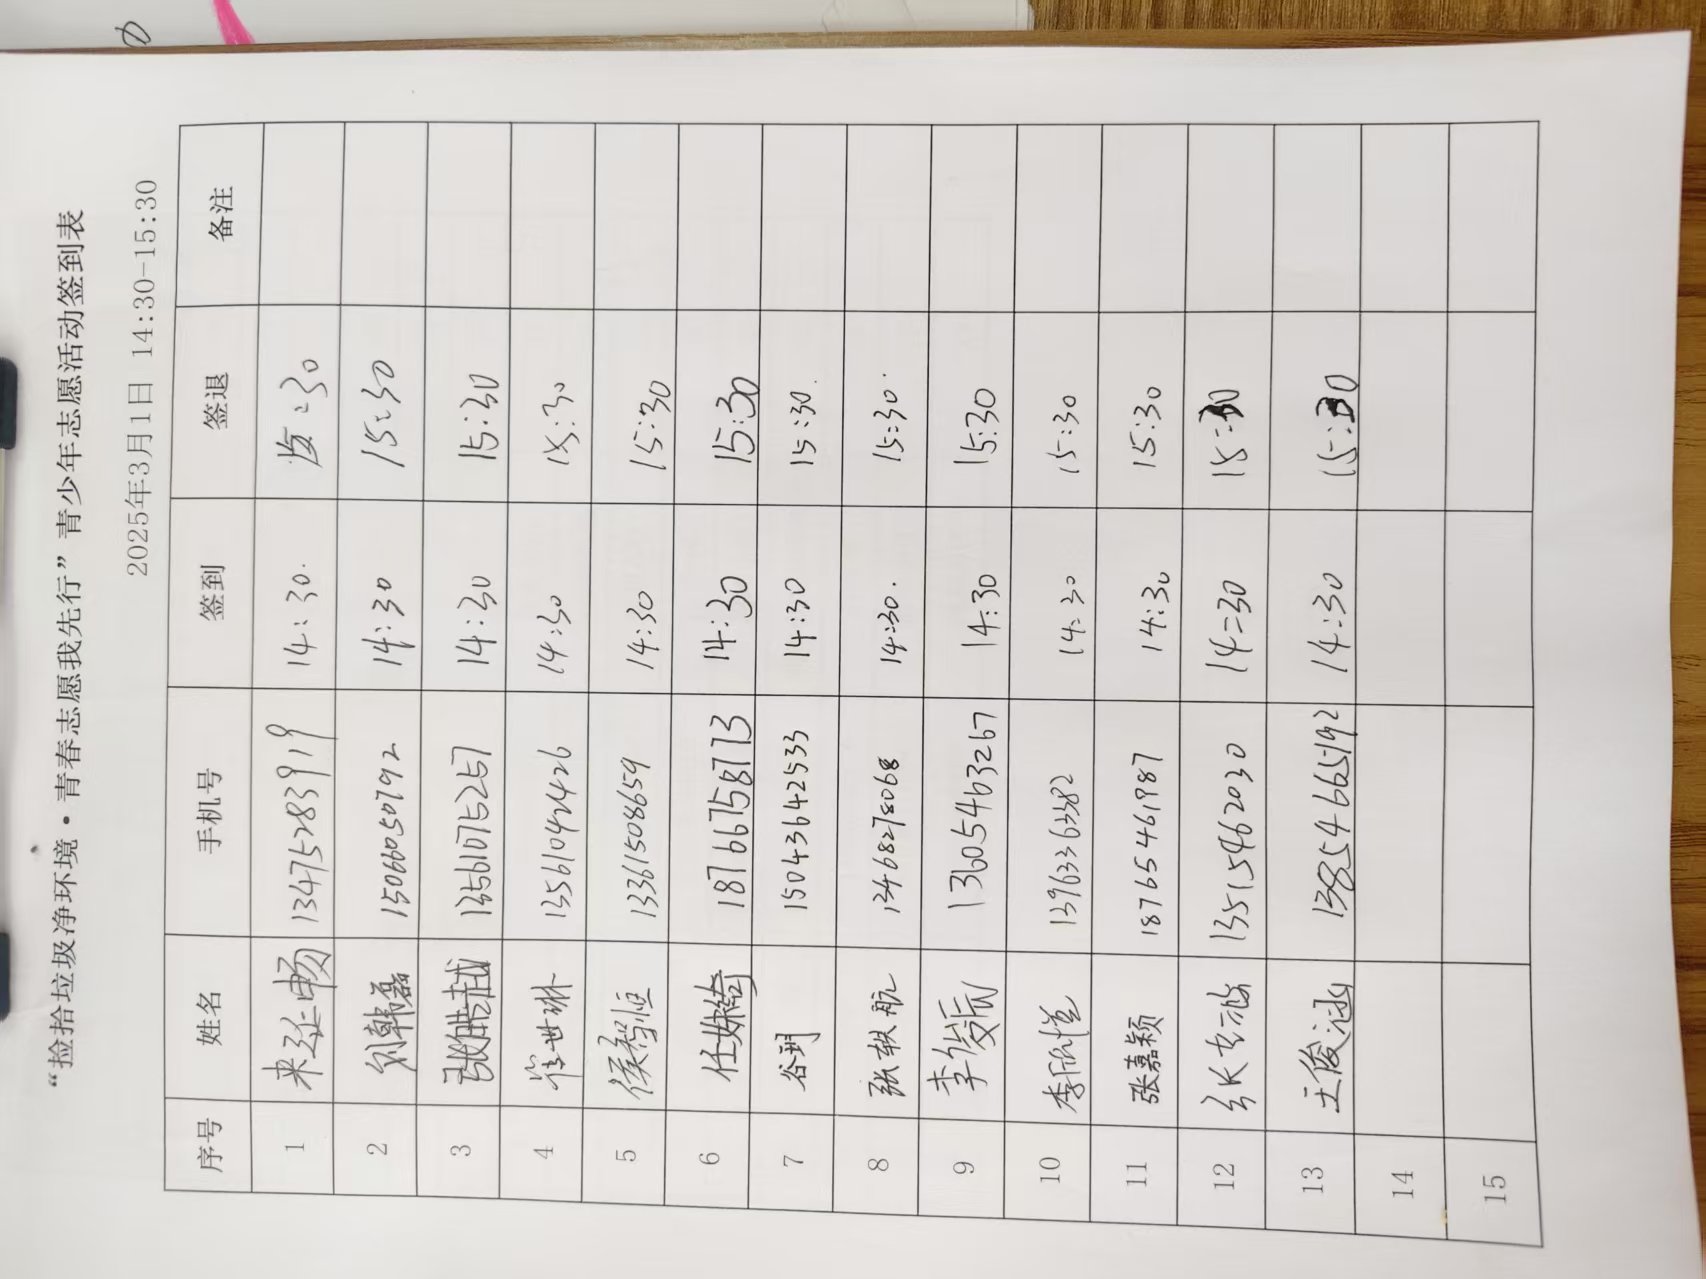 “捡拾垃圾净环境·青春志愿我先行”青少年志愿活动签到表
2025年3月1日 14:30-15:30
序号 姓名 手机号 签到 签退 备注
1 来延畅 13475283919 14:30. 15:30
2 刘韩磊 15066050792 14:30 15:30
3 张皓越 13561075257 14:30 15:30
4 徐世琳 13561042426 14:30 15:30
5 侯 恒 13361508659 14:30 15:30
6 任姝绮 18766758713 14:30 15:30
7 谷玥 15043642533 14:30 15:30.
8 张轶航 13468278068 14:30. 15:30.
9 李俊辰 13605463267 14:30 15:30
10 李欣 13963363382 14:30 15:30
11 张嘉颖 18765461987 14:30 15:30
12 张 13515462030 14:30 15:30
13 王俊涵 13854665192 14:30 15:30
14
15